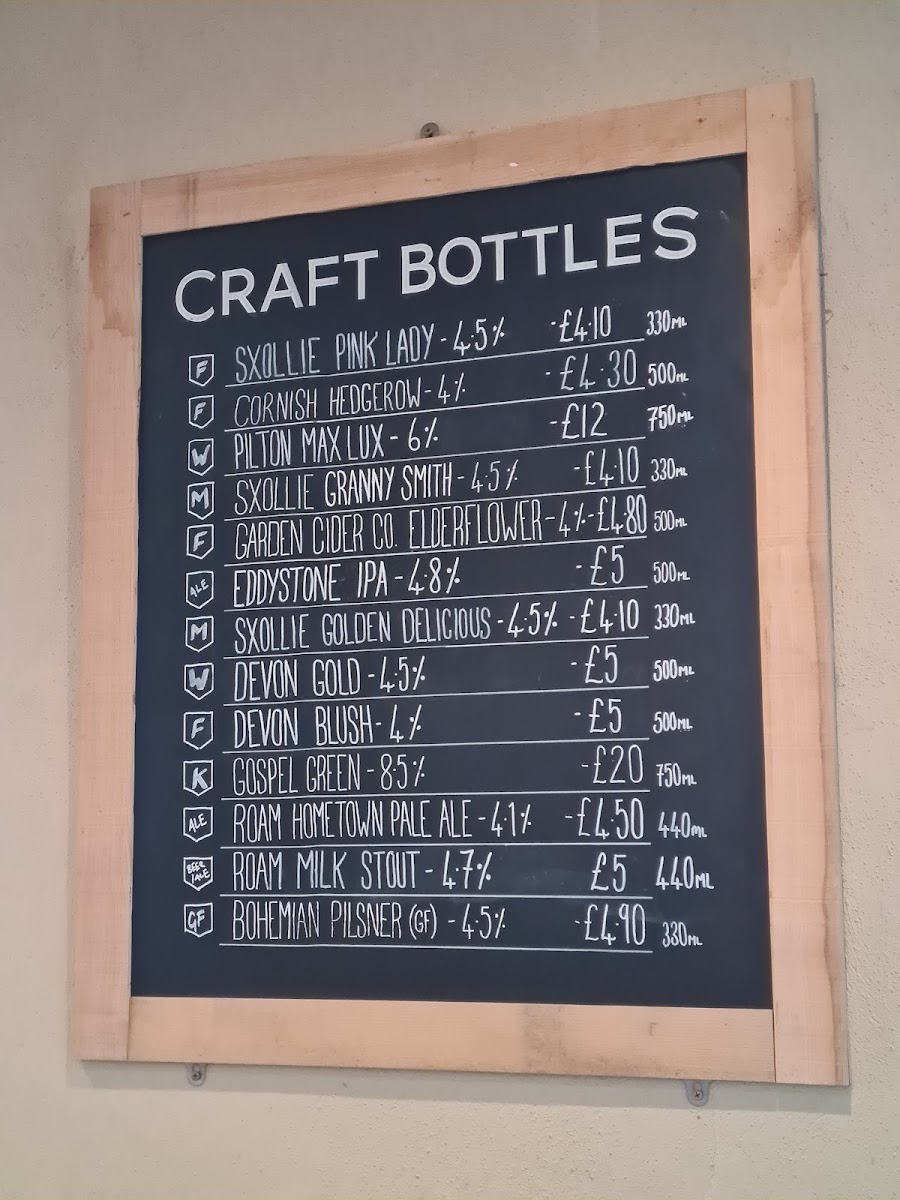 CRAFT BOTTLES
F SXOLLIE PINK LADY - 4.5% - £4.10 330ML
F CORNISH HEDGEROW - 4% - £4.30 500ML
W PILTON MAX LUX - 6% - £12 750ML
M SXOLLIE GRANNY SMITH - 4.5% - £4.10 330ML
F GARDEN CIDER CO. ELDERFLOWER - 4% - £4.80 500ML
ALE EDDYSTONE IPA - 4.8% - £5 500ML
M SXOLLIE GOLDEN DELICIOUS - 4.5% - £4.10 330ML
W DEVON GOLD - 4.5% - £5 500ML
F DEVON BLUSH - 4% - £5 500ML
K GOSPEL GREEN - 8.5% - £20 750ML
ALE ROAM HOMETOWN PALE ALE - 4.1% - £4.50 440ML
BEER /ALE ROAM MILK STOUT - 4.7% £5 440ML
GF BOHEMIAN PILSNER (GF) - 4.5% - £4.90 330ML